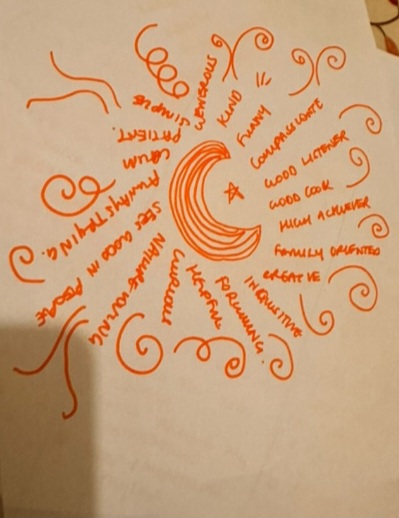 GENEROUS
KIND
FUNNY
COMPASSIONATE
GOOD LISTENER
GOOD COOK
HIGH ACHIEVER
FAMILY ORIENTED
CREATIVE
FORGIVING.
HELPFUL
NATURE LOVING
SEES GOOD IN PEOPLE
ALWAYS TRYING.
CALM
PATIENT.